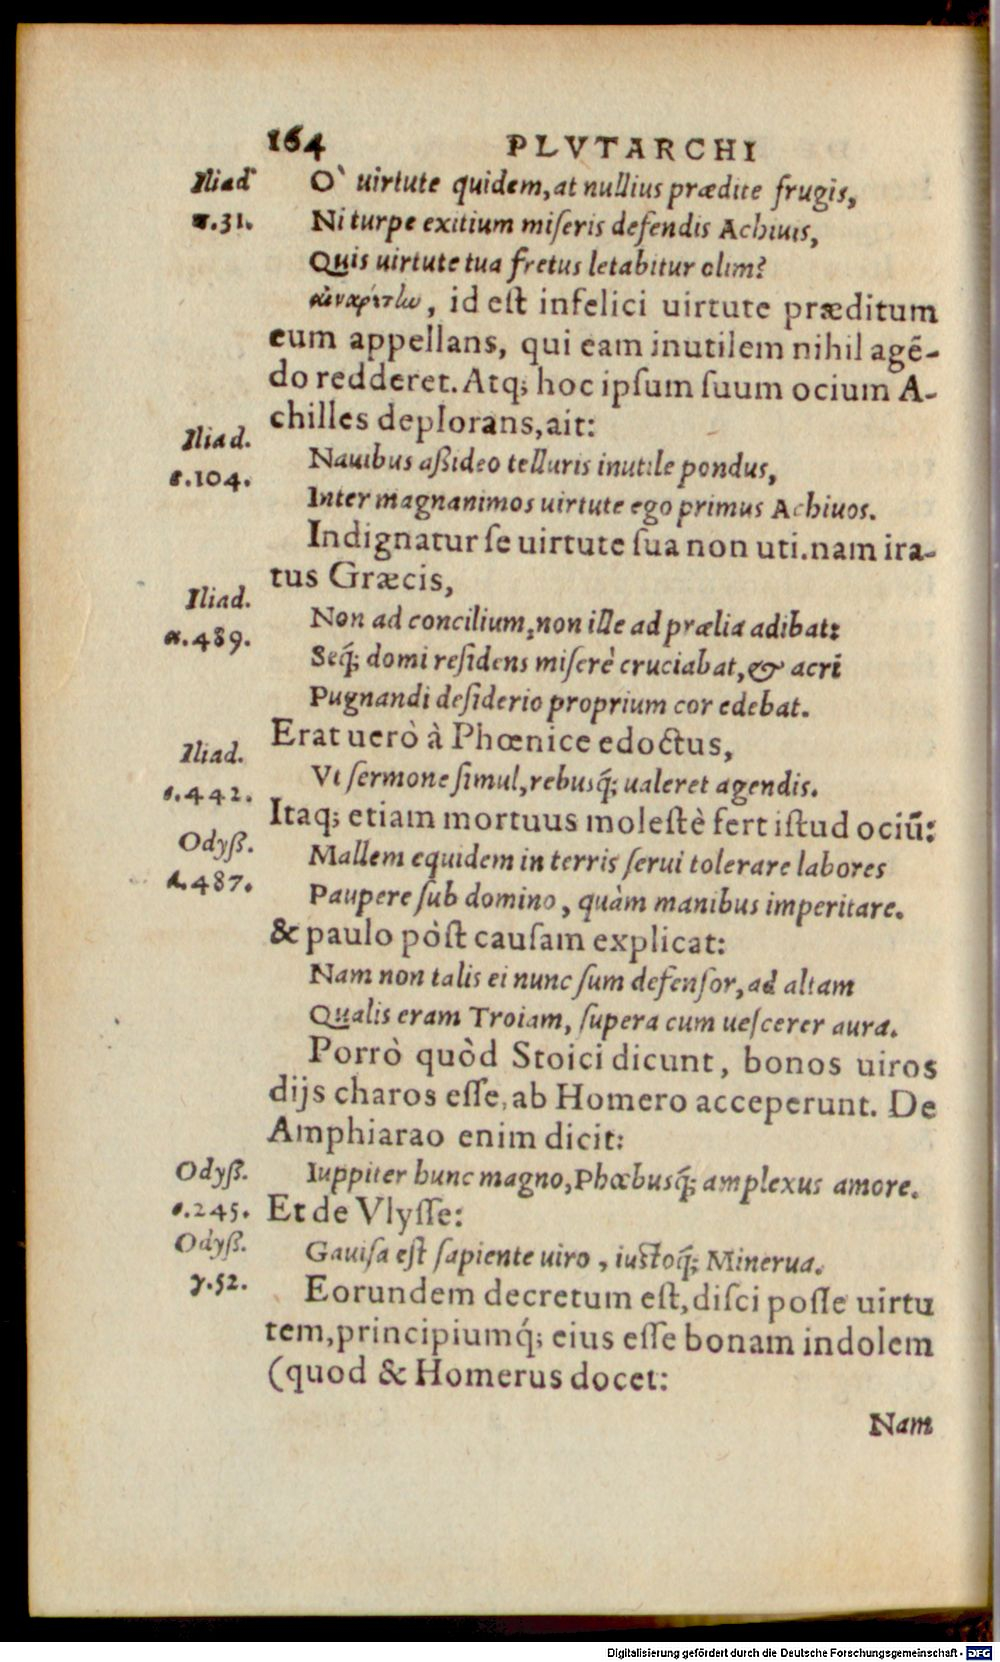 164 PLVTARCHI
Iliad O` uirtute quidem, at nullius prædite frugis,
π.31. Ni turpe exitium miſeris defendis Achiuis,
Quis uirtute tua fretus letabitur olim?
, id eſt infelici uirtute præditum
eum appellans, qui eam inutilem nihil agē-
do redderet. Atq; hoc ipſum ſuum ocium A-
chilles deplorans, ait:
Iliad. Nauibus aßideo telluris inutile pondus,
σ.104. Inter magnanimos uirtute ego primus Achiuos.
Indignatur ſe uirtute ſua non uti. nam ira-
tus Græcis,
Iliad. Non ad concilium, non ille ad prælia adibat:
α.489. Seq́; domi reſidens miſerè cruciabat, & acri
Pugnandi deſiderio proprium cor edebat.
Erat uerò à Phœnice edoctus,
Iliad. Vt ſermone ſimul, rebusq́; ualeret agendis.
ι.442. Itaq; etiam mortuus moleſtè fert iſtud ociū:
Odyß. Mallem equidem in terris ſerui tolerare labores
λ.487. Paupere ſub domino, quàm manibus imperitare.
& paulo pòſt cauſam explicat:
Nam non talis ei nunc ſum defenſor, ad altam
Qualis eram Troiam, ſupera cum ueſcerer aura.
Porrò quòd Stoici dicunt, bonos uiros
dijs charos eſſe, ab Homero acceperunt. De
Amphiarao enim dicit:
Odyß. Iuppiter hunc magno, Phœbusq́; amplexus amore.
ο.245. Et de Vlyſſe:
Odyß. Gauiſa eſt ſapiente uiro, iuſtoq́; Minerua.
γ.52. Eorundem decretum eſt, diſci poſſe uirtu
tem, principiumq́; eius eſſe bonam indolem
(quod & Homerus docet:
Nam
Digitalisierung gefördert durch die Deutsche Forschungsgemeinschaft - DFG